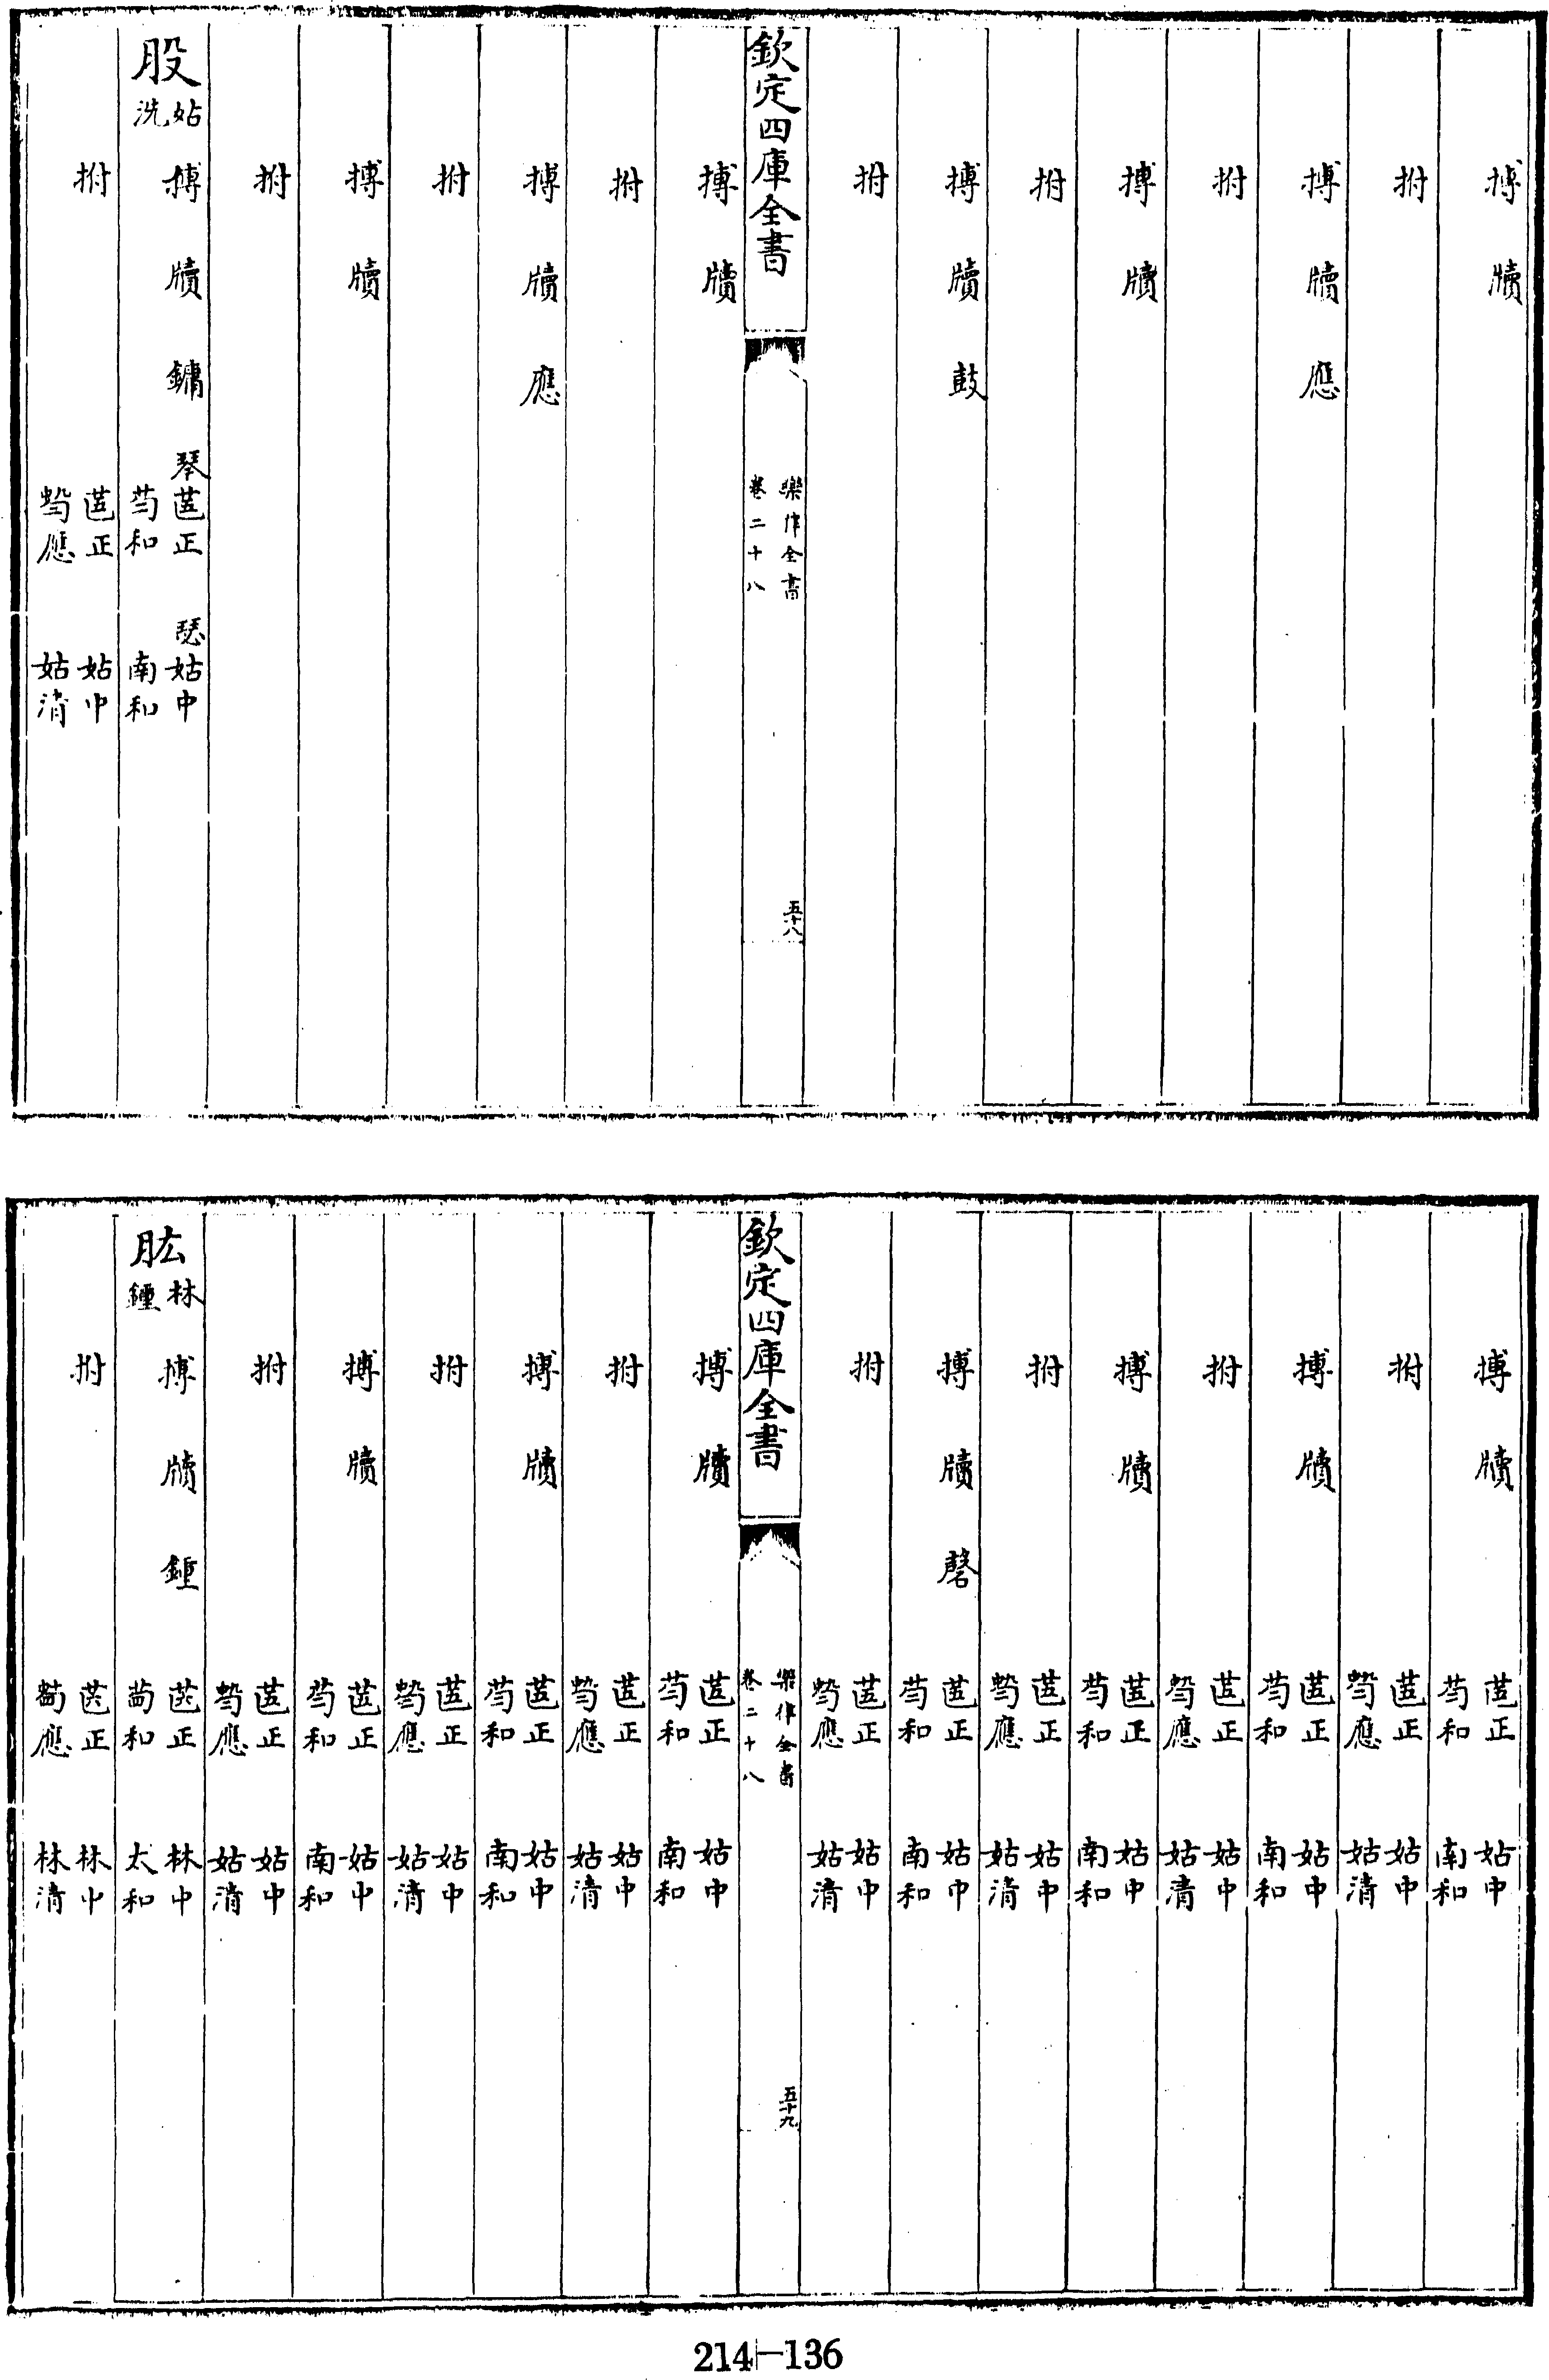 搏牘
拊
搏牘應
拊
搏牘
拊
搏牘鼓
拊
欽定四庫全書
樂律全書
卷二十八
五十八
搏牘
拊
搏牘應
拊
搏牘
拊
股姑洗搏牘鏞琴正和瑟姑中南和
拊正應姑中姑清
搏牘正和姑中南和
拊正應姑中姑清
搏牘正和姑中南和
拊正應姑中姑清
搏牘正和姑中南和
拊正應姑中姑清
搏牘磬正和姑中南和
拊正應姑中姑清
欽定四庫全書
樂律全書
卷二十八
五十九
搏牘正和姑中南和
拊正應姑中姑清
搏牘正和姑中南和
拊正應姑中姑清
搏牘正和姑中南和
拊正應姑中姑清
肱林鍾搏牘鍾正和林中太和
拊正應林中林清
214-136